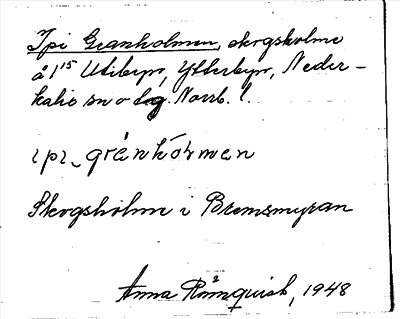 Ipi Granholmen, skogsholme
å 1¹⁵ Utibyn, Ytterbyn, Neder-
kalix sn o lag. Norrb. l.
ipi_grȧnhó̱ɫmen
Skogsholme i Bremsmyran
Anna Rönnquist, 1948